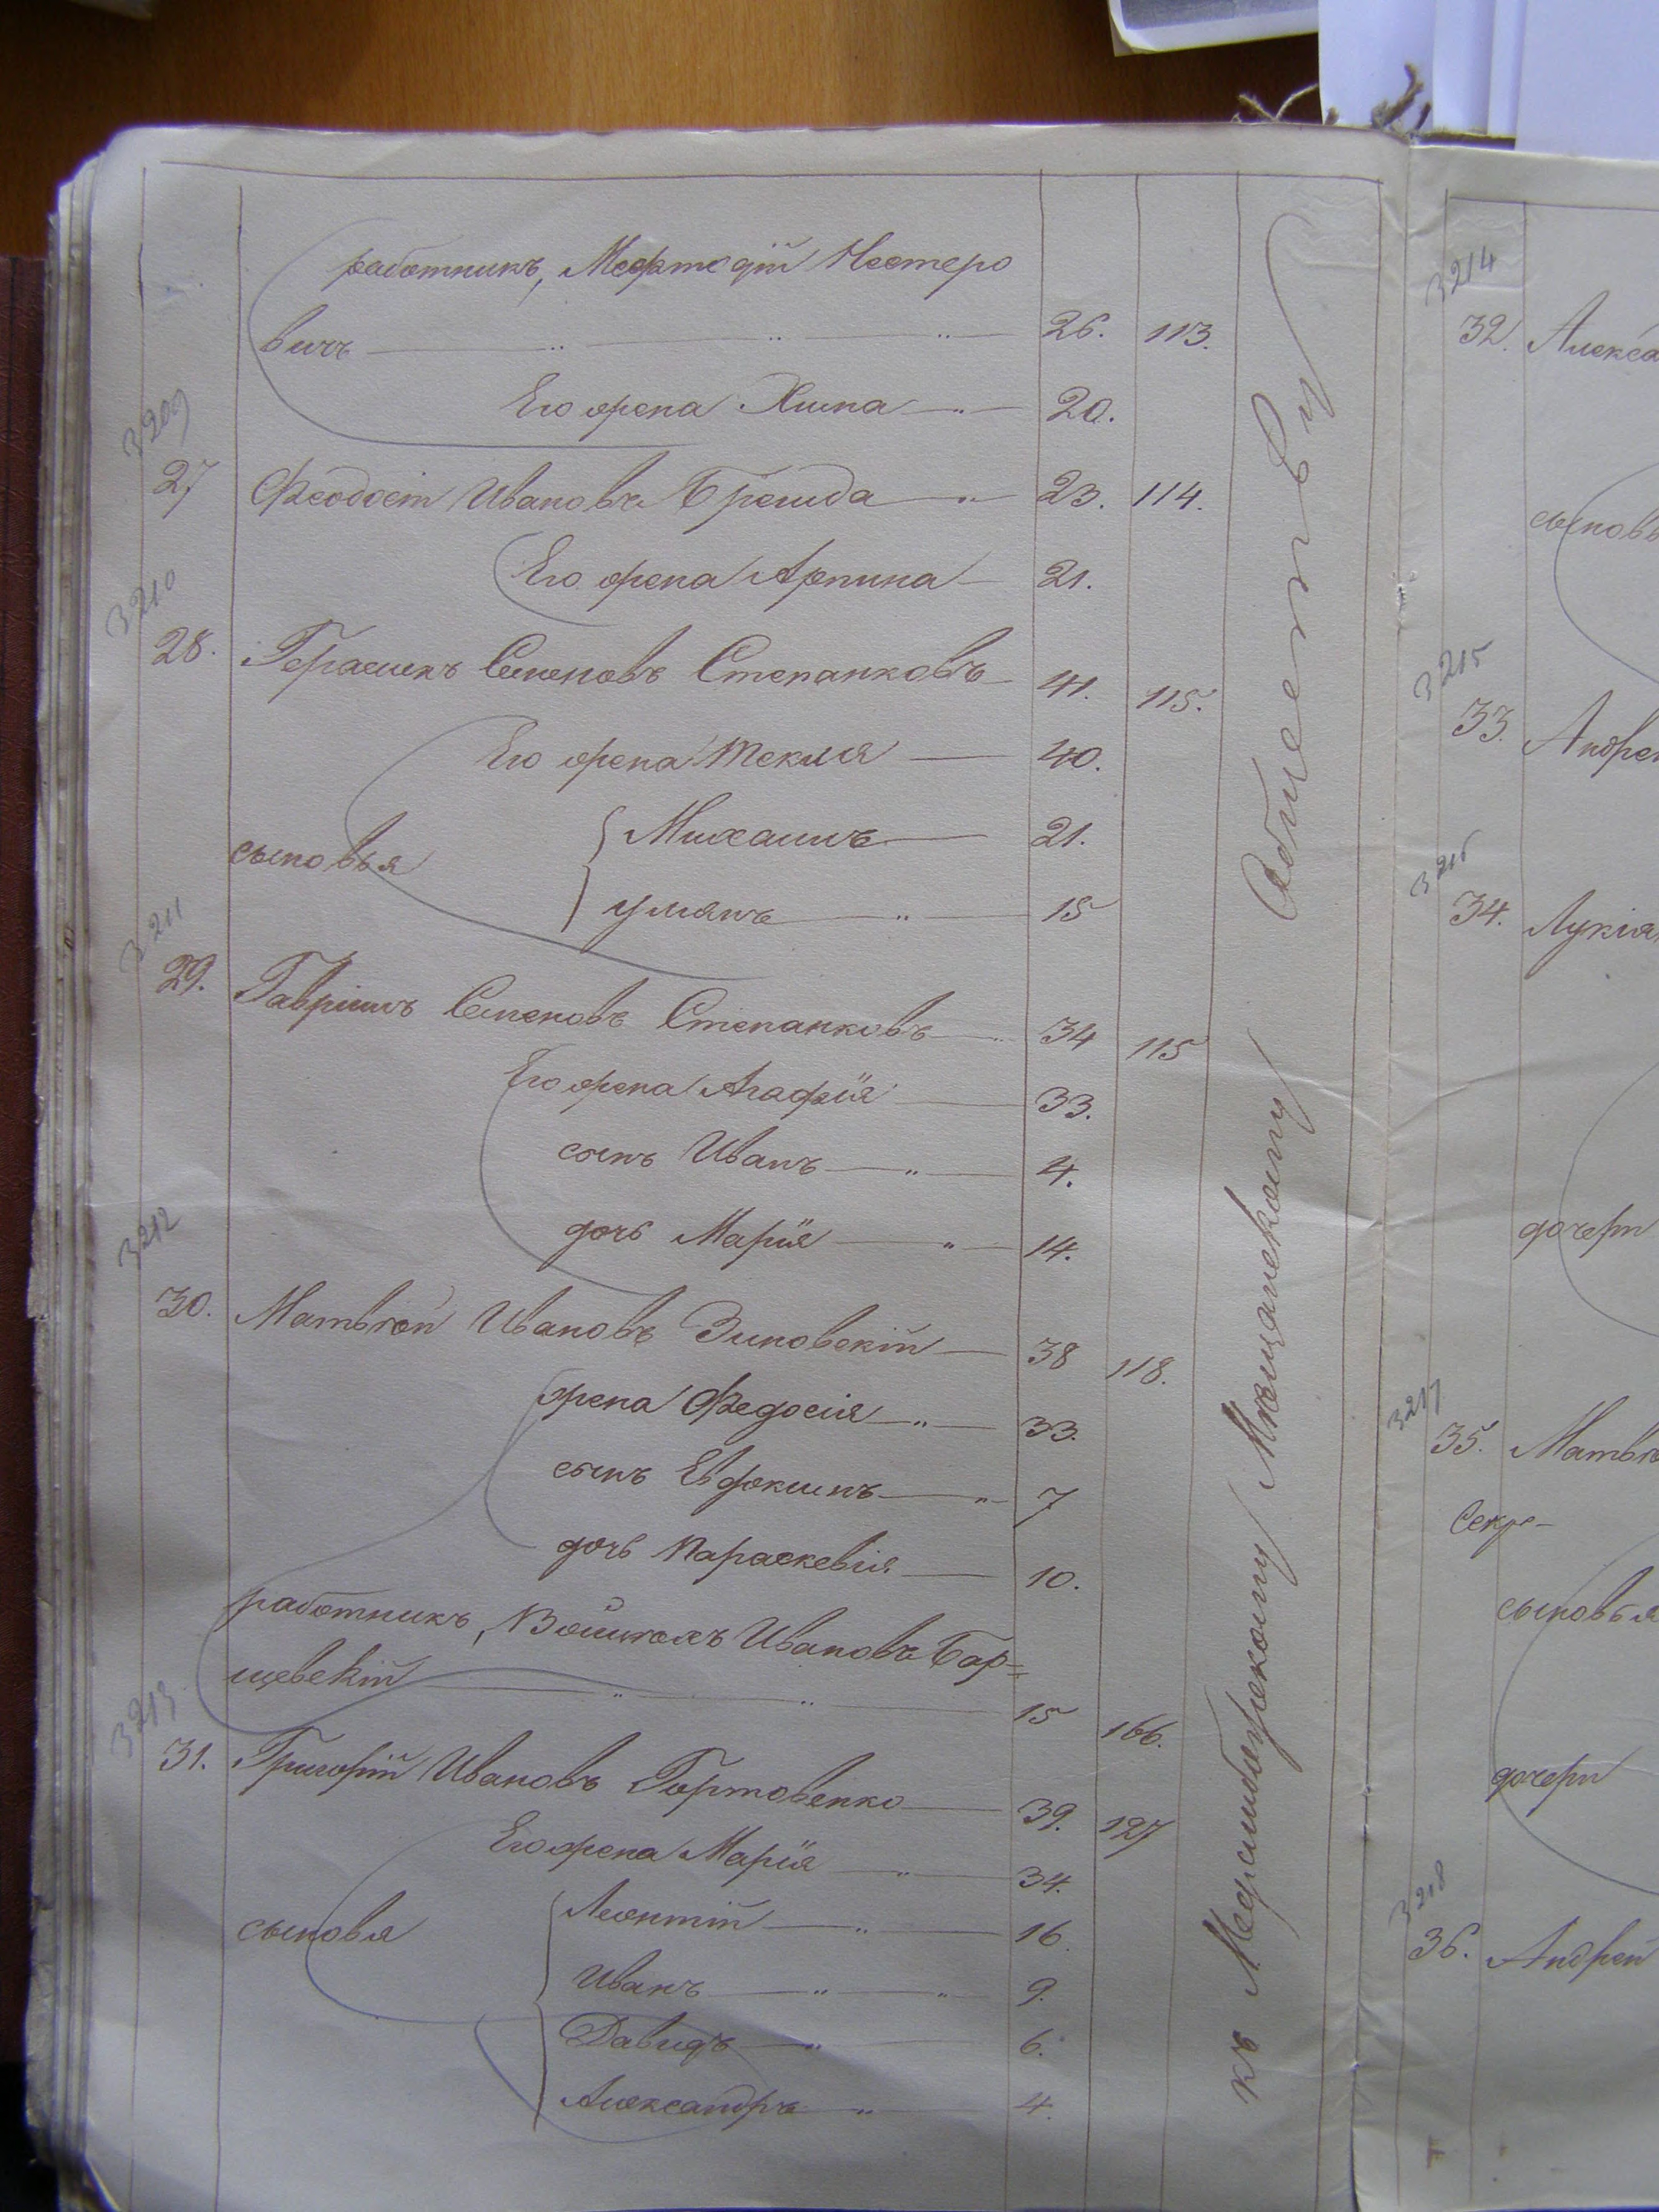 работникъ, Мефтодій Нестеро
вичъ 26. 113.
Его жена Химка 20.
3209
27 Феодосій Ивановъ 23. 114.
Его жена Арпина 21.
3210
28. Герасимъ Семеновъ Степанковъ 41. 115.
Его жена Текля 40.
сыновья Михаилъ 21.
Улиянъ 15
3211
29. Гавріилъ Семеновъ Степанковъ 34 115
Его жена Агафія 33.
сынъ Иванъ 4.
дочь Марія 14.
3212
30. Матвѣй Ивановъ Зиновскій 38 118.
жена Федосія 33.
сынъ Евдокимъ 7
дочь Параскевія 10.
работникъ, Ивановъ Бар=
щевскій 15 166.
3213
31. Григорій Ивановъ Гортовенко 39. 127
Его жена Марія 34.
сыновя Леонтій 16.
Иванъ 9.
Давидъ 6.
Александръ 4.
къ Меджибожскому Мѣщанскому Обществу
3214
32. Алекса
сыновь
3215
33. Андре
3216
34. Лукія
дочери
3217
35. Матвѣ
сыновья
дочери
3218
36. Андрей